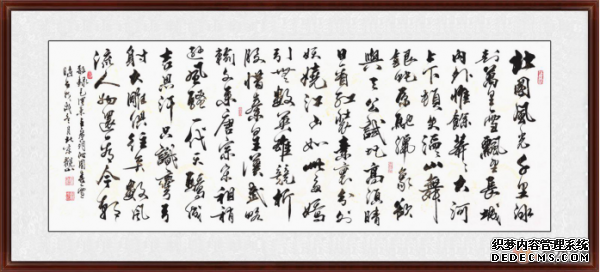 北國風光千里冰
封萬里雪飄望長城
内外惟餘莽莽大河
上下頓失滔滔山舞
銀蛇原馳蠟象欲
與天公試比高須晴
日看紅裝素裹分外
妖嬈江山如此多嬌
引無數英雄競折
腰惜秦皇漢武略
輸文采唐宗宋祖稍
遜風騷一代天驕成
吉思汗只識彎弓
射大雕俱往矣數風
流人物還看今朝
敬録毛澤東主席詞沁園春雪
织梦内容管理系统
DEDECMS.COM